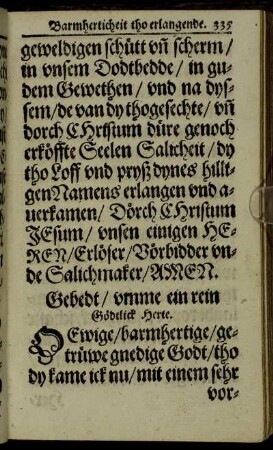 Barmherticheit tho erlangende. 335
geweldigen schütt vn̄ scherm /
in vnsem Dodtbedde / in gu-
dem Gewethen / vnd na dys-
sem / de van dy thogesechte / vn̄
dorch CHristum düre genoch
erköffte Seelen Salicheit / dy
tho Loff vnd pryß dynes hilli-
gen Namens erlangen vnd a-
uerkamen / Dörch CHristum
JEsum / vnsen einigen HE-
REN / Erlöser / Vörbidder vn-
de Salichmaker / AMEN.
Gebedt / vmme ein rein
Gödtlick Herte.
O Ewige / barmhertige / ge-
trüwe gnedige Godt / tho
dy kame ick nu / mit einem sehr
vor-